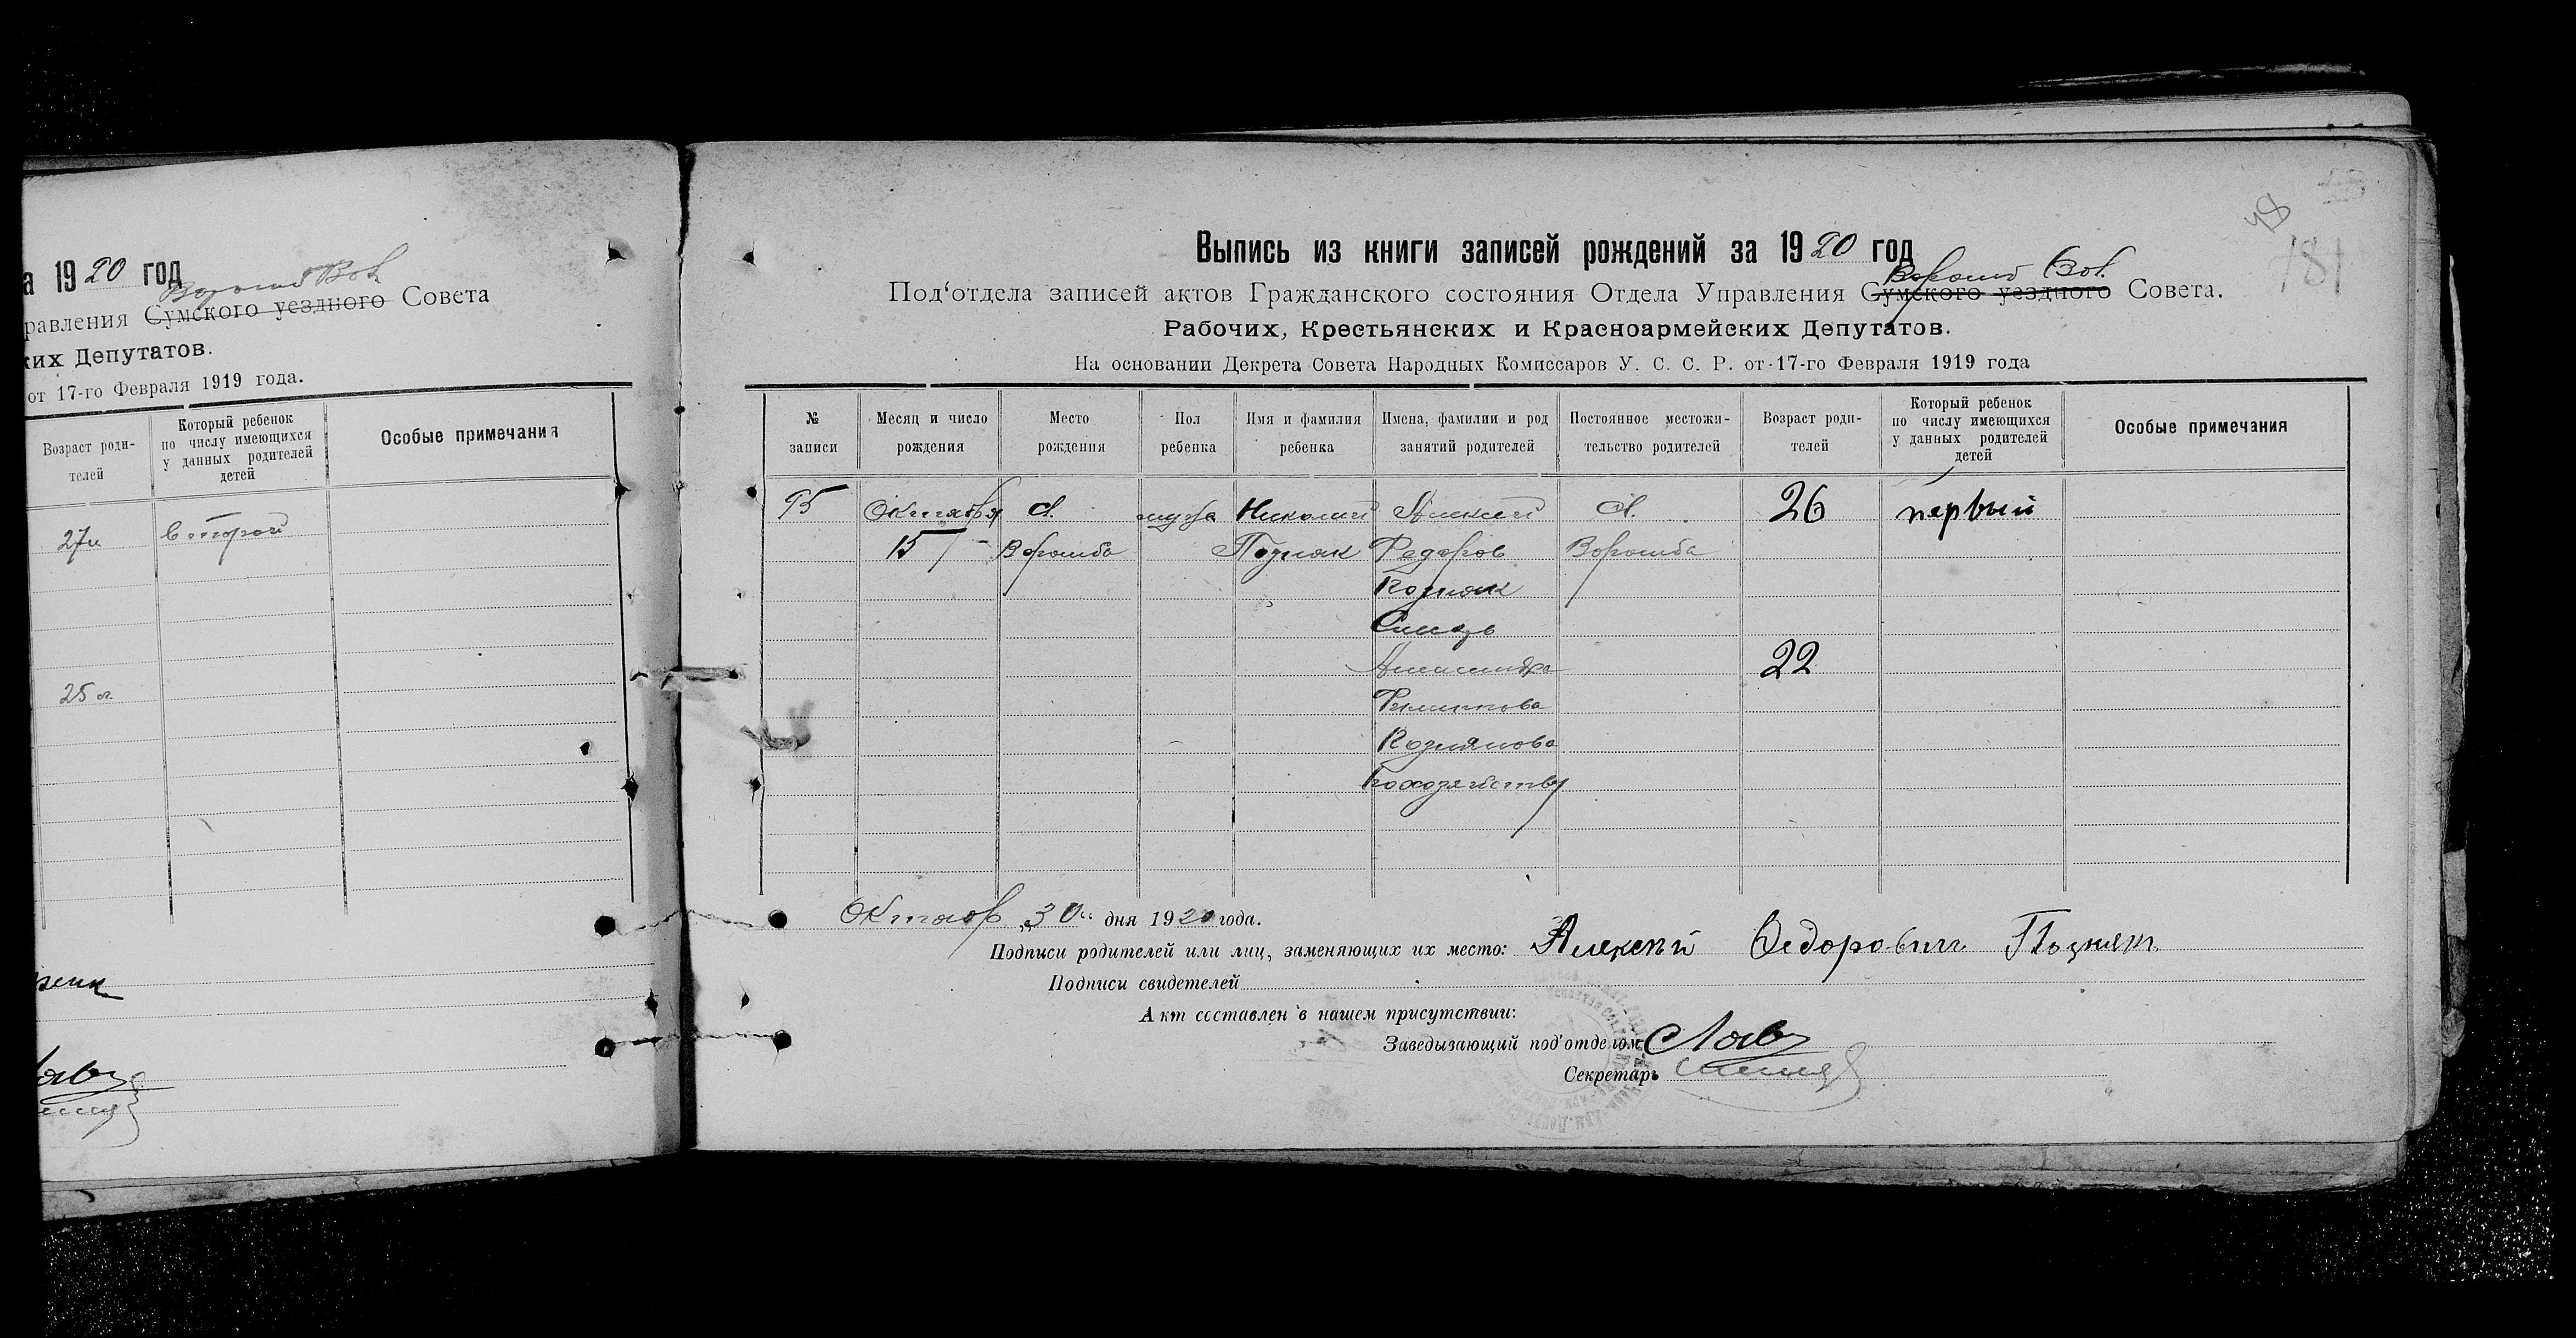 а 1920 год
Ворожб Вол
равления Сумского уездного Совета
ких Депутатов.
от 17-го Февраля 1919 года.
Возраст роди-
телей
Который ребенок
по числу имеющихся
у данных родителей
детей
Особые примечания
второй
48
181
Выпись из книги записей рождений за 1920 год
Ворожб Вол.
Под‘отдела записей актов Гражданского состояния Отдела Управления Сумского уездного Совета.
Рабочих, Крестьянских и Красноармейских Депутатов.
На основании Декрета Совета Народных Комиссаров У. С. С. Р. от 17-го Февраля 1919 года
№
записи
Месяц и число
рождения
Место
рождения
Пол
ребенка
Имя и фамилия
ребенка
Имена, фамилии и род
занятий родителей
Постоянное местожи-
тельство родителей
Возраст роди-
телей
Который ребенок
по числу имеющихся
у данных родителей
детей
Особые примечания
95
Октября
15
с.
Ворожба
Николай
Позняк
Алексей
Федоров
Позняк
Александра
Филиппова
Познякова
по хозяйству
с.
Ворожба
26
22
первый
Октяб „30“ дня 1920 года.
Подписи родителей или лиц, заменяющих их место: Алексей Федорович Позняк
Подписи свидетелей
Акт составлен в нашем присутствии:
Заведывающий под‘отделом
Секретарь